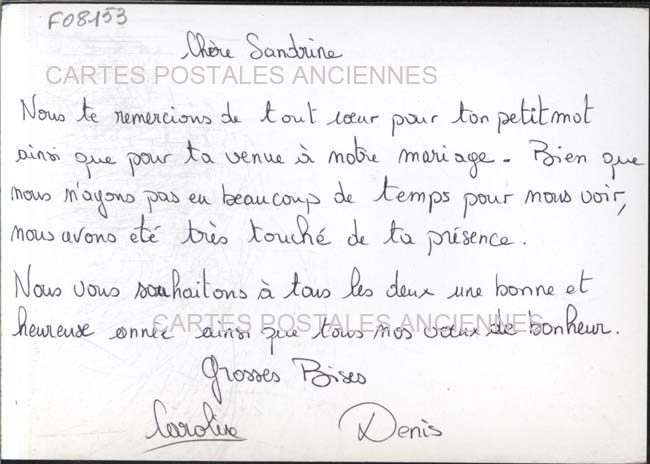 F08153
Chère Sandrine
CARTES POSTALES ANCIENNES
Nous te remercions de tout cœur pour ton petit mot
ainsi que pour ta venue à notre mariage. Bien que
nous n'ayons pas eu beaucoup de temps pour nous voir,
nous avons été très touché de ta présence.
Nous vous souhaitons à tous les deux une bonne et
heureuse année ainsi que tous nos vœux de bonheur.
CARTES POSTALES ANCIENNES
Grosses Bises
Caroline Denis